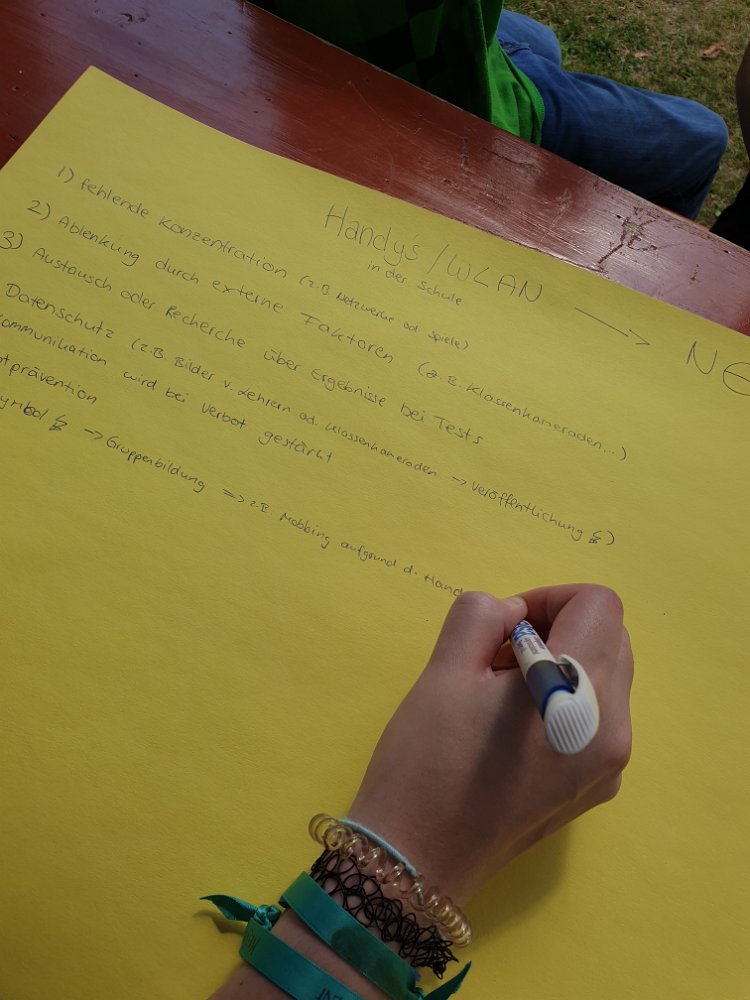 Handy's / WLAN → NE
in der Schule
1) fehlende Konzentration (z.B. Netzwerke od. Spiele)
2) Ablenkung durch externe Faktoren (z.B. Klassenkameraden...)
3) Austausch oder Recherche über Ergebnisse bei Tests
Datenschutz (z.B. Bilder v. Lehrern od. Klassenkameraden → Veröffentlichung ↯)
ommunikation wird bei Verbot gestärkt
tprävention
ymbol ↯ → Gruppenbildung => z.B. Mobbing aufgrund d. Hand